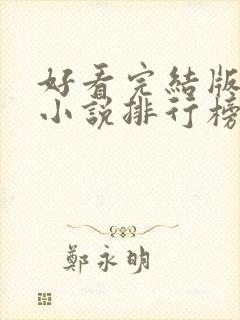 好看完結版
小說排行榜
鄭永明